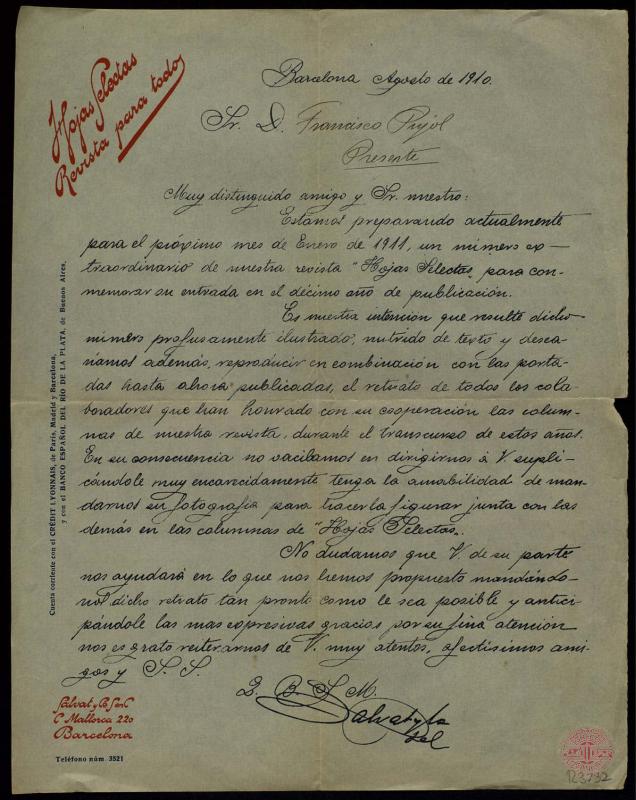 Hojas Selectas
Revista para todos
Barcelona Agosto de 1910.
Sr. D. Francisco Pujol
Presente
Muy distinguido amigo y Sr. nuestro:
Estamos preparando actualmente
para el próximo mes de Enero de 1911, un número ex-
traordinario de nuestra revista "Hojas Selectas", para con-
memorar su entrada en el décimo año de publicación.
Es nuestra intención que resulte dicho
número profusamente ilustrado, nutrido de texto y desea-
ríamos además, reproducir en combinación con las porta-
das hasta ahora publicadas, el retrato de todos los cola-
boradores que han honrado con su cooperación las colum-
nas de nuestra revista, durante el transcurso de estos años.
En su consecuencia no vacilamos en dirigirnos á V. supli-
cándole muy encarecidamente tenga la amabilidad de man-
darnos su fotografía para hacerla figurar junta con las
demás en las columnas de "Hojas Selectas".
No dudamos que V. de su parte
nos ayudará en lo que nos hemos propuesto mandándo-
nos dicho retrato tan pronto como le sea posible y antici-
pándole las mas expresivas gracias por su fina atención
nos es grato reiterarnos de V. muy atentos, afectísimos ami-
gos y S. S.
Q. B. S. M.
Salvat y Ca
SenC
Cuenta corriente con el CRÉDIT LYONNAIS, de París, Madrid y Barcelona,
y con el BANCO ESPAÑOL DEL RÍO DE LA PLATA, de Buenos Aires.
Salvat y Ca SenC
C. Mallorca 220
Barcelona
Teléfono núm. 3521
R3732